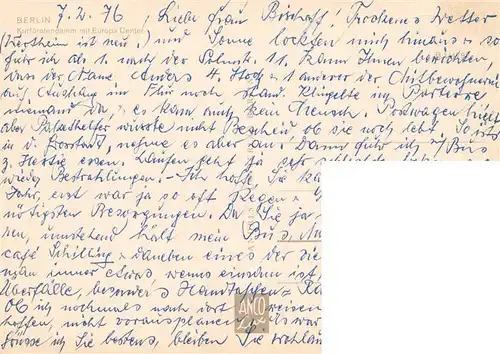 BERLIN
Kurfürstendamm mit Europa Center
7.2.76 Liebe Frau Bischoff! Trockenes Wetter
(Wertheim ist neu.) und Sonne lockten mich hinaus u. so
fuhr ich als 1. nach der 11. Kann Ihnen berichten,
dass der Name 4. Stock u. 1 anderer der Mitbewohnerin
auf Aushang im Flur noch stand. Klingelte im Parterre
niemand da, es kam auch kein Mensch. Postwagen hielt
aber wusste nicht Bescheid ob sie noch lebt.
in d. Vorstand, nehme es aber an. Dann fuhr ich m/ Bus
z. Hertie essen. Laufen geht ja
wieder Bestrahlungen. Ich hoffe, Sie
Jahr, erst war ja so oft Regen u.
nötigsten Besorgungen. Da Sie ja
nen, umstehend hält mein Bus,
café Schilling u. daneben eines der
man immer etwas, wenns einem ist,
Überfälle, besonders Handtaschen
Ob ich nochmals nach dort reisen
hoffen, nicht vorausplanen,
Grüsse ich Sie bestens, bleiben Sie
AMCO